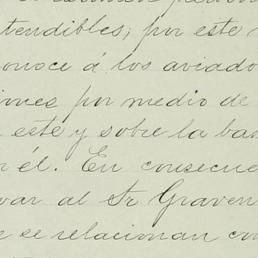 tendibles; por este
onoce á los aviado
iones por medio de
este y sobre la bas
r él. En consecue
var al Sr Graven
e se relacionan con